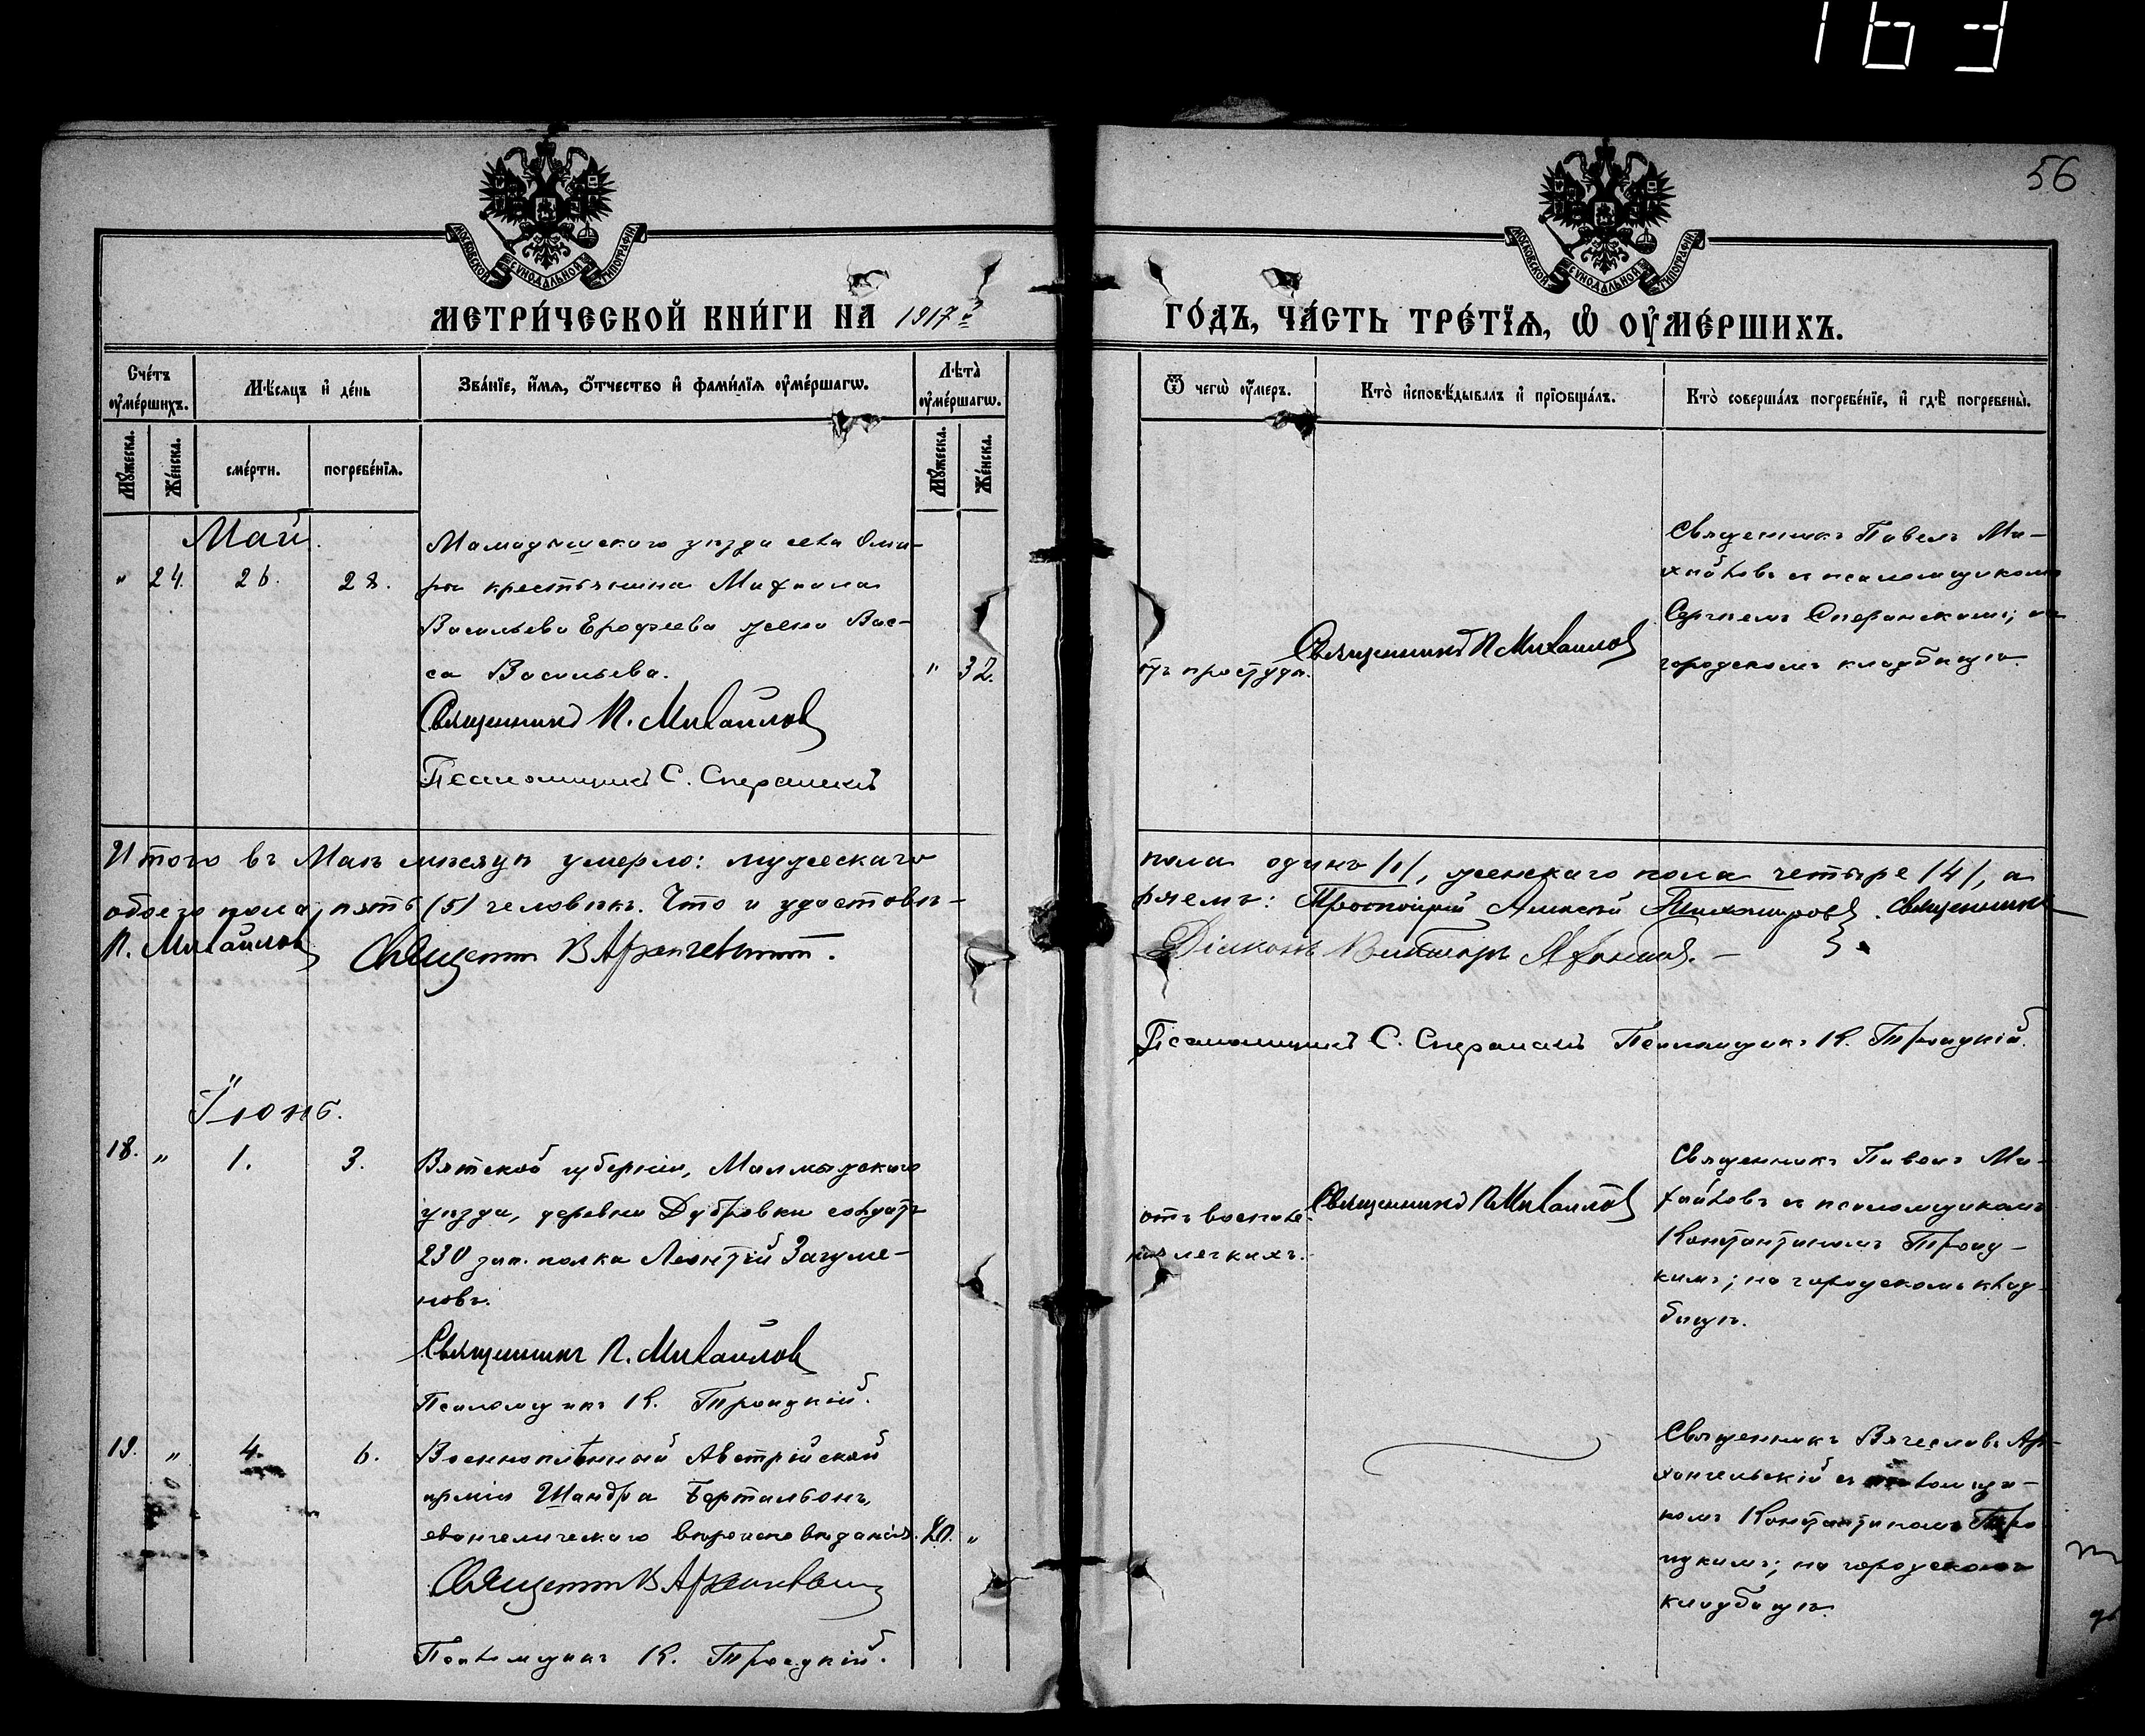 163
56
МОСКОВСКОЙ СѴНОДАЛЬНОЙ ТИПОГРАФІИ
МОСКОВСКОЙ СѴНОДАЛЬНОЙ ТИПОГРАФІИ
МЕТРИ́ЧЕСКОЙ КНИ́ГИ НА 1917й
ГО́ДЪ, ЧА́СТЬ ТРЕ́ТЇѦ, Ѡ҆ ОУ҆МЕ́РШИХЪ.
Сче́тъ оу҆ме́ршихъ.
Мѣ́сѧцъ и҆ де́нь
Зва́нїе, и҆́мѧ, ѻ҆́тчество и҆ фами́лїѧ оу҆ме́ршагѡ.
Лѣта̀ оу҆ме́ршагѡ.
Ѿ чегѡ̀ оу҆́меръ.
Кто̀ и҆сповѣ́дывалъ и҆ прїѡбща́лъ.
Кто̀ соверша́лъ погребе́нїе, и҆ гдѣ̀ погребены̀.
Мꙋ́жеска.
Же́нска.
сме́рти.
погребе́нїѧ.
Мꙋ́жеска.
Же́нска.
Май.
" 24. 26. 28.
Мамадышского уѣзда села Ома-
ры крестьянина Михаила
Васильева Ерофеева жена Вас-
са Васильева. " 32.
Священникъ П. Михайлов
Псаломщикъ С. Сперанскій
отъ простуды.
Священникъ П Михайлов
Священникъ Павелъ Ми-
хайловъ съ псаломщикомъ
Сергѣемъ Сперанскимъ; на
городскомъ кладбищѣ.
Итого въ Маѣ мѣсяцѣ умерло: мужескаго
пола одинъ /1/, женскаго пола четыре /4/, а
обоего пола, пять (5) человѣкъ. Что и удостовѣ-
ряемъ: Протоіерей Алексій Тихомировъ. Священникъ
П. Михайлов Священник В Архангельскій.
Діаконъ Викторъ
Псаломщикъ С. Сперанскій Псаломщикъ К. Троицкій.
Іюнь.
18. " 1. 3.
Вятской губерніи, Малмыжскаго
уѣзда, деревни Дубровки солдатъ
230 зап. полка Леонтій Загуме-
новъ.
Священникъ П. Михайлов
Псаломщикъ К. Троицкій.
отъ воспале-
нія легкихъ.
Священникъ П Михайлов
Священникъ Павелъ Ми-
хайловъ съ псаломщикомъ
Константиномъ Троиц-
кимъ; на городскомъ клад-
бищѣ.
19. " 4. 6.
Военноплѣнный Австрійской
арміи Шандра Бертальонъ,
евангелическаго вѣроисповѣданія. 20. "
Священник В Архангельскій
Псаломщикъ К. Троицкій.
Священникъ Вячеславъ Ар-
хангельскій съ псаломщи-
комъ Константиномъ Тро-
ицкимъ; на городскомъ
кладбищѣ.